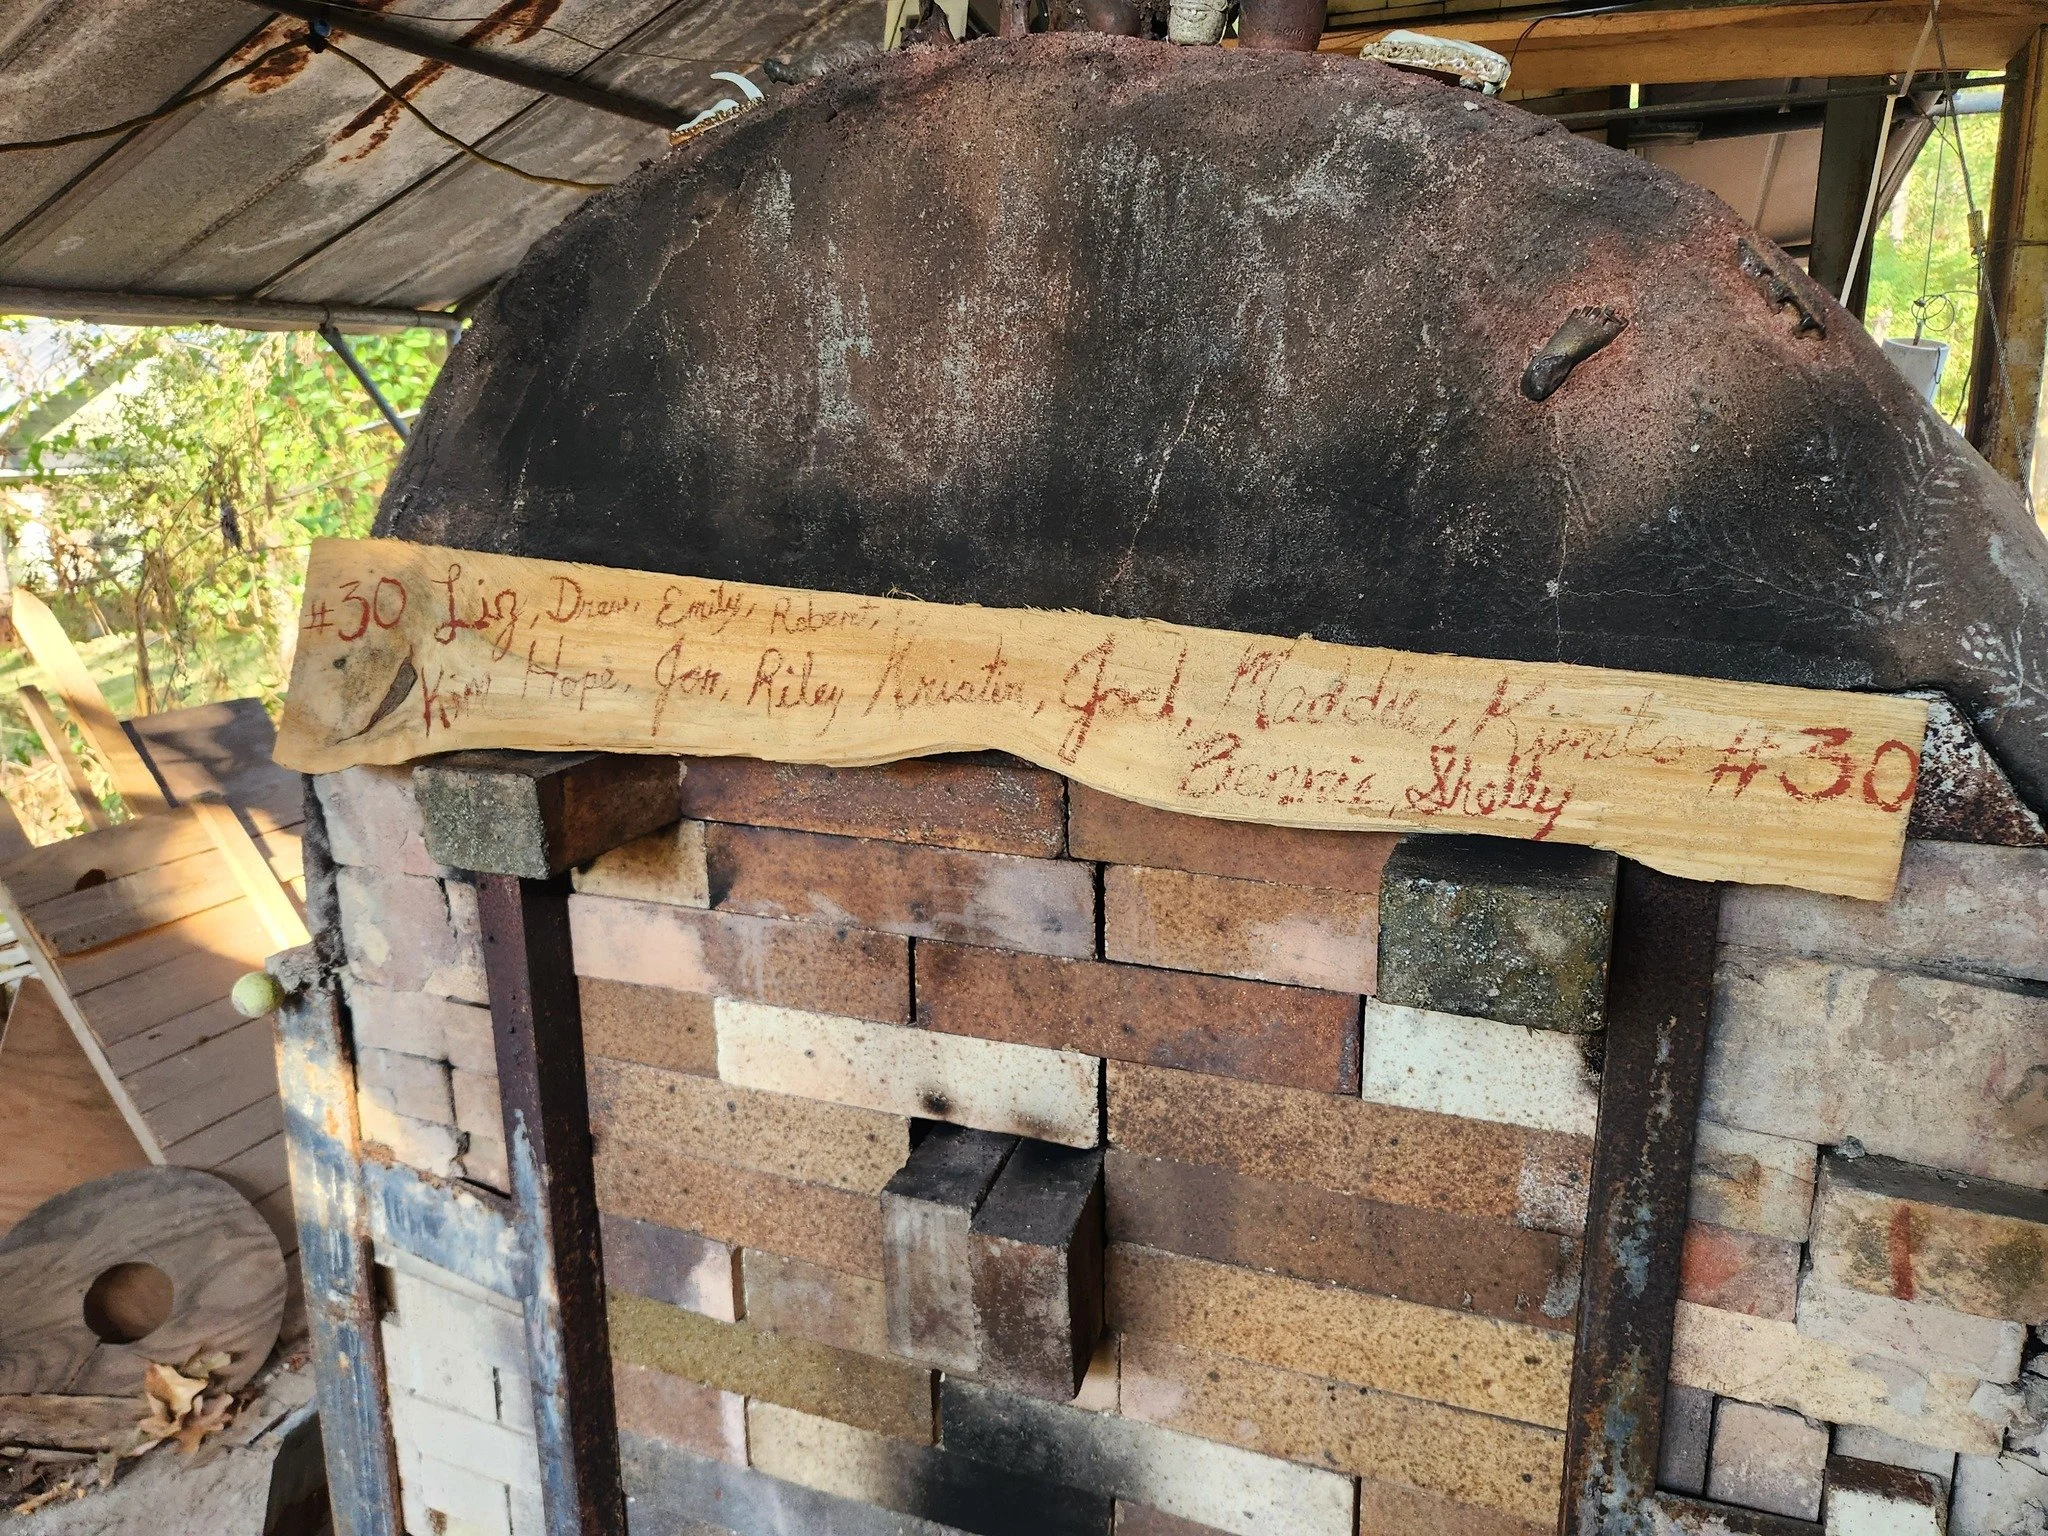 #30 Liz, Drew, Emily, Robert,
Kim Hope, Jon, Riley Kristin, Joel, Maddie, Kimiko #30
Bennie, Shelby